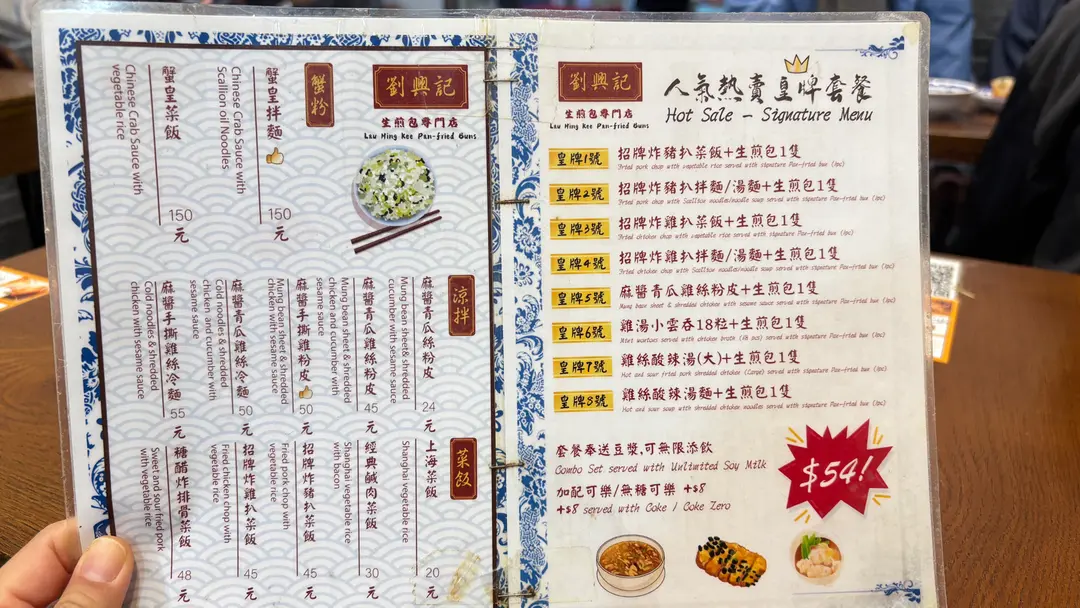 劉興記
生煎包專門店
Lau Hing Kee Pan-fried Buns
蟹粉
蟹皇拌麵
Chinese Crab Sauce with
Scallion oil Noodles
150
元
蟹皇菜飯
Chinese Crab Sauce with
vegetable rice
150
元
涼拌
麻醬青瓜絲粉皮
Mung bean sheet&
cucumber with sesame sauce
24
元
麻醬青瓜雞絲粉皮
Mung bean sheet & shredded
chicken and cucumber with
sesame sauce
45
元
麻醬手撕雞粉皮
Mung bean sheet & shredded
chicken with sesame sauce
50
元
麻醬青瓜雞絲冷麵
Cold noodles & shredded
chicken and cucumber with
sesame sauce
50
元
麻醬手撕雞絲冷麵
Cold noodles & shredded
chicken with sesame sauce
55
元
菜飯
上海菜飯
Shanghai vegetable rice
20
元
經典鹹肉菜飯
Shanghai vegetable rice
with bacon
30
元
招牌炸豬扒菜飯
Fried pork chop with
vegetable rice
45
元
招牌炸雞扒菜飯
Fried chicken chop with
vegetable rice
45
元
糖醋炸排骨菜飯
Sweet and sour fried pork
with vegetable rice
48
元
劉興記
生煎包專門店
Lau Hing Kee Pan-fried Buns
人氣熱賣皇牌套餐
Hot Sale – Signature Menu
皇牌1號
招牌炸豬扒菜飯+生煎包1隻
Fried pork chop with vegetable rice served with signature Pan-fried bun (1pc)
皇牌2號
招牌炸豬扒拌麵/湯麵+生煎包1隻
Fried pork chop with Scallion noodles/noodle soup served with signature Pan-fried bun (1pc)
皇牌3號
招牌炸雞扒菜飯+生煎包1隻
Fried chicken chop with vegetable rice served with signature Pan-fried bun (1pc)
皇牌4號
招牌炸雞扒拌麵/湯麵+生煎包1隻
Fried chicken chop with Scallion noodles/noodle soup served with signature Pan-fried bun (1pc)
皇牌5號
麻醬青瓜雞絲粉皮+生煎包1隻
Mung bean sheet & shredded chicken with sesame sauce served with signature Pan-fried bun (1pc)
皇牌6號
雞湯小雲吞18粒+生煎包1隻
Mini wontons with chicken broth (18 pcs) served with signature Pan-fried bun (1pc)
皇牌7號
雞絲酸辣湯(大)+生煎包1隻
Hot and sour soup with shredded chicken (Large) served with signature Pan-fried bun (1pc)
皇牌8號
雞絲酸辣湯麵+生煎包1隻
Hot and sour soup with shredded chicken noodles served with signature Pan-fried bun (1pc)
套餐奉送豆漿,可無限添飲
Combo Set served with Unlimited Soy Milk
加配可樂/無糖可樂 +$8
+$8 served with Coke / Coke Zero
$54!